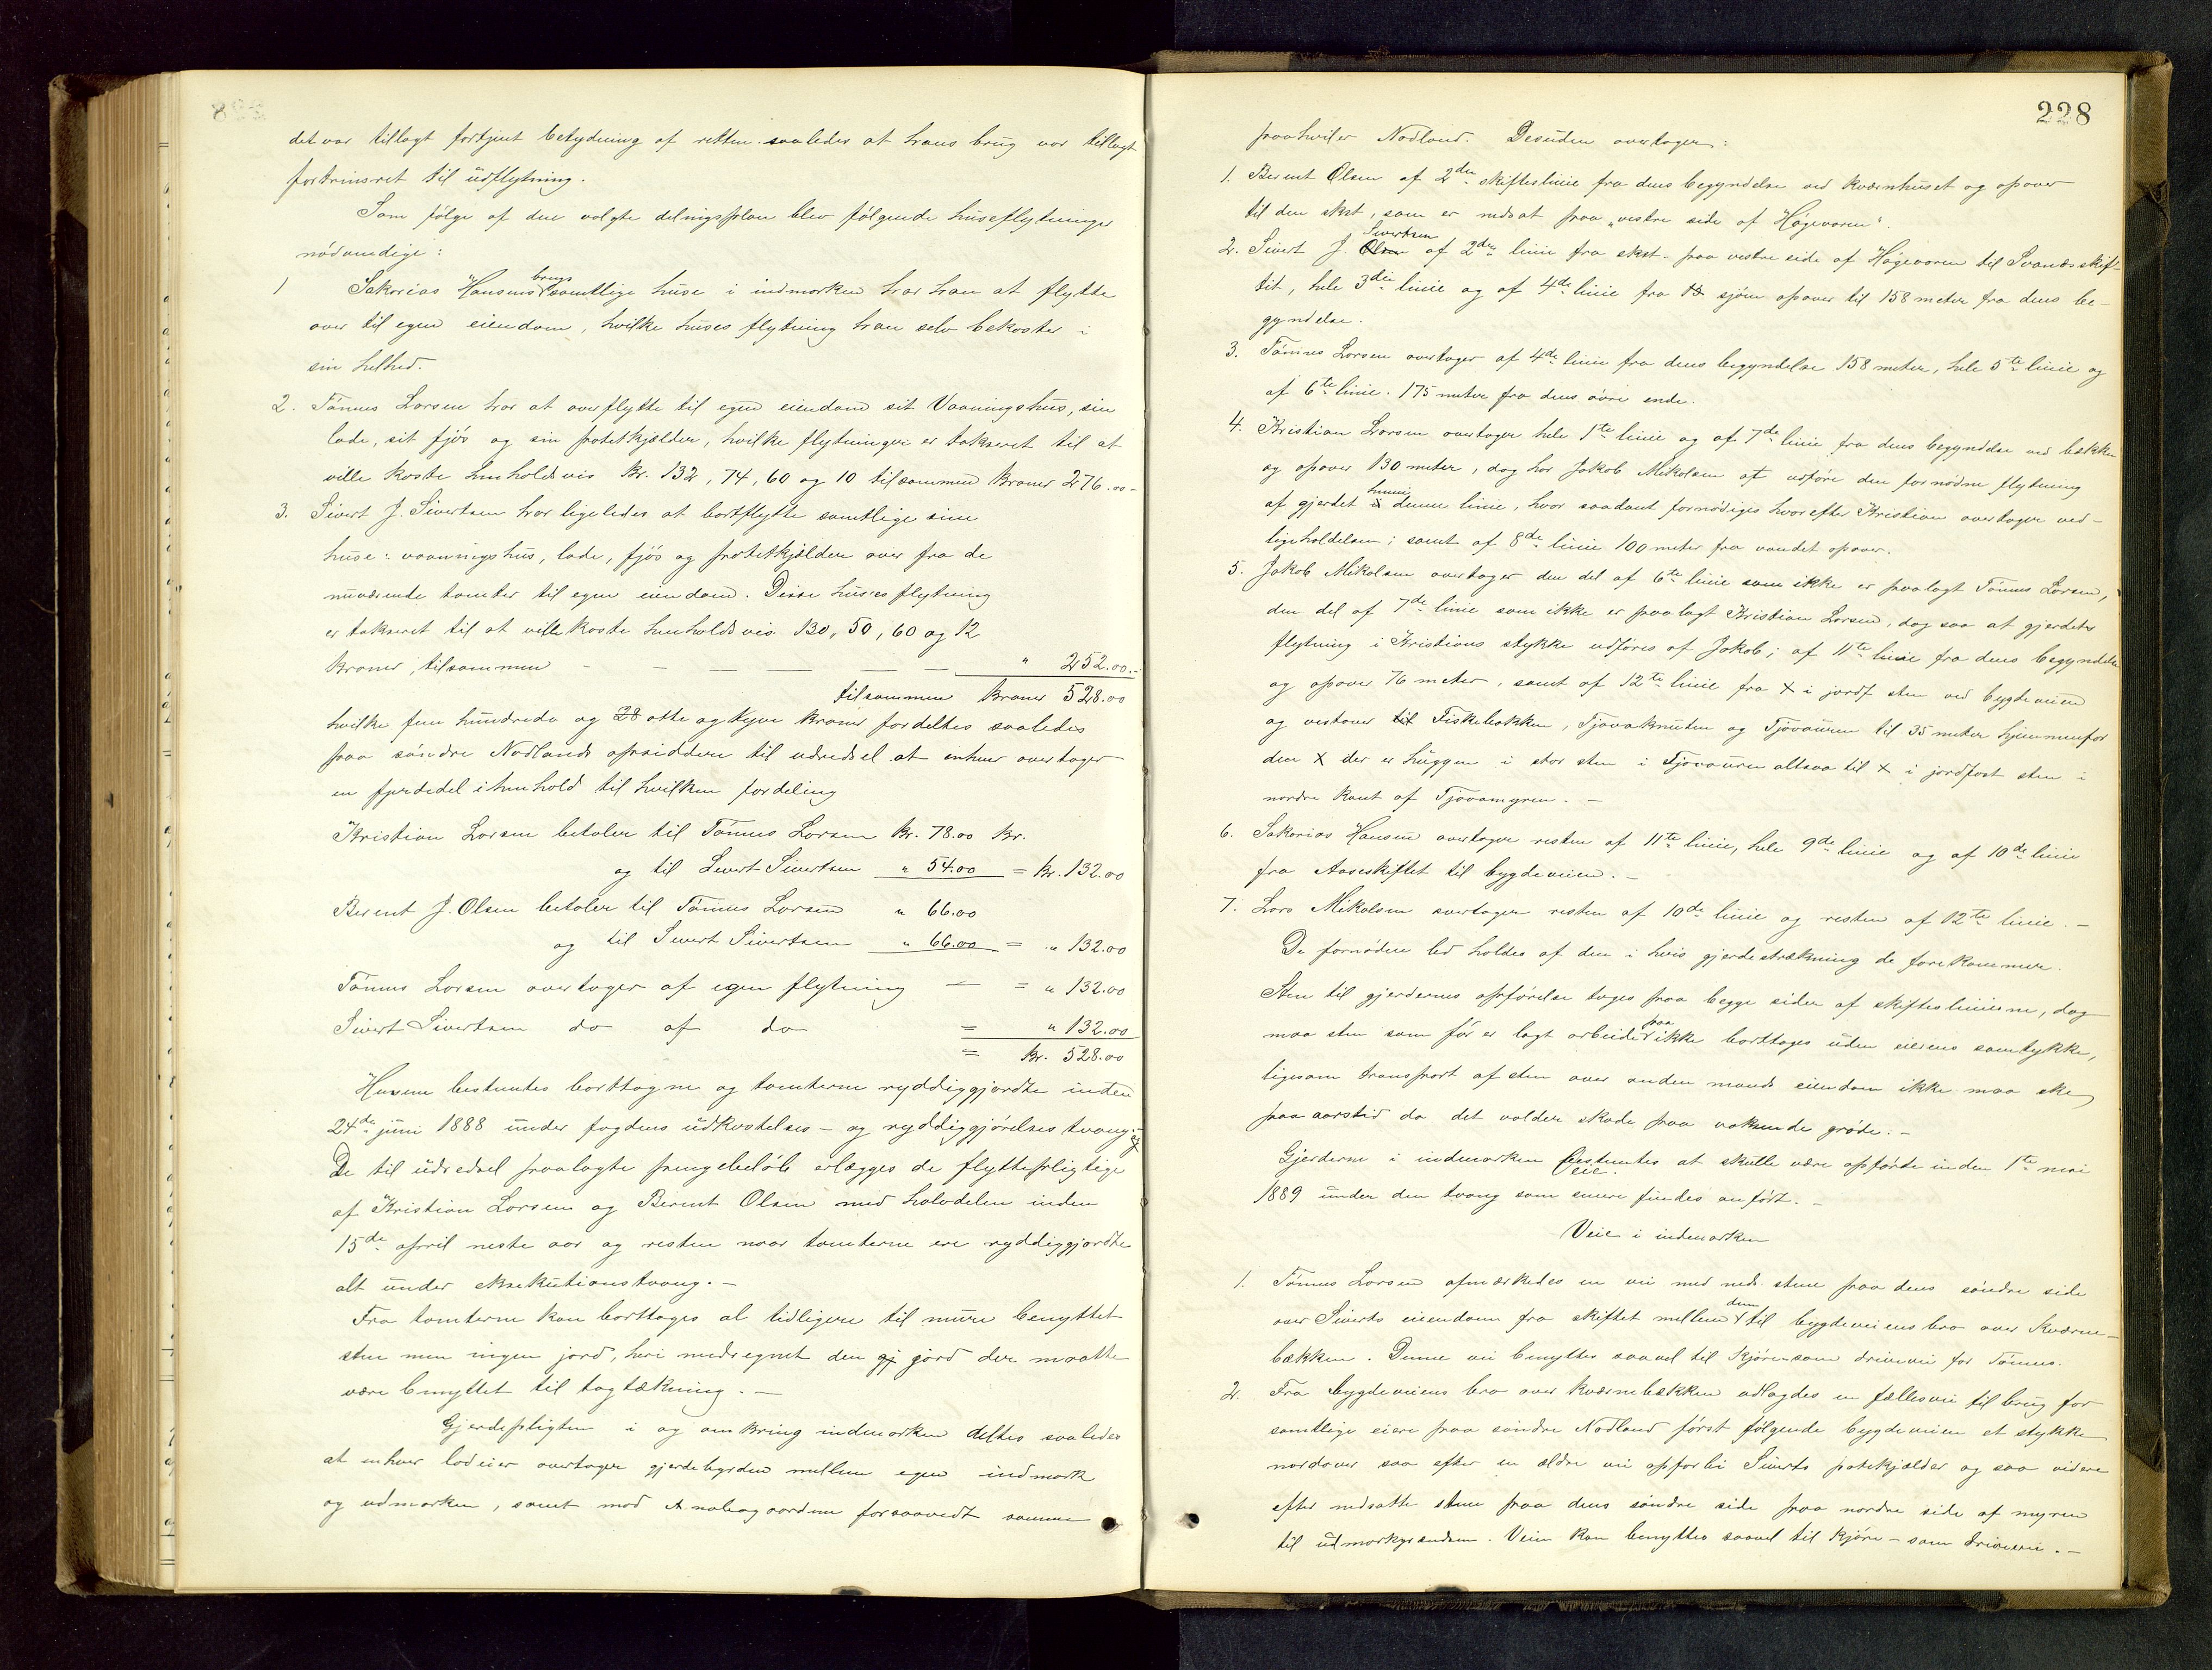 det var tillagt fortjent betydning af retten saaledes at hans brug var tillagt
fortrinsret til udflytning.
Som følge af den valgte delingsplan blev følgende huseflytninger
nødvendige:
1 Sakarias Hansens brugs samtlige huse i indmarken har han at flytte
over til egen eiendom, hvilke huses flytning han selv bekoster i
sin helhed.
2. Tønnes Larsen har at overflytte til egen eiendom sit Vaaningshus, sin
lade, sit fjøs og sin potetkjælder, hvilke flytninger er takseret til at
ville koste henholdsvis Kr. 132, 74, 60 og 10 tilsammen Kroner 276.00-
3. Sivert J. Sivertsen har ligeledes at bortflytte samtlige sine
huse: vaaningshus, lade, fjøs og potetkjælder over fra de
nuværende tomter til egen eiendom. Disse huses flytning
er takseret til at ville koste henholdsvis 130, 50, 60 og 12
Kroner, tilsammen - — — — — — " 252.00.-
tilsammen Kroner 528.00
hvilke fem hundrede og 28 otte og tyve kroner fordeltes saaledes
paa søndre Nodlands opsiddere til udredsel at enhver overtager
en fjerdedel i henhold til hvilken fordeling
Kristian Larsen betaler til Tønnes Larsen Kr. 78.00 Kr.
og til Sivert Sivertsen " 54.00 = Kr. 132.00
Berent J. Olsen betaler til Tønnes Larsen " 66.00
og til Sivert Sivertsen " 66.00 = " 132.00
Tønnes Larsen overtager af egen flytning — = " 132.00
Sivert Sivertsen do af do = " 132.00
= Kr. 528.00
Husene bestemtes borttagne og tomterne ryddiggjordte inden
24de juni 1888 under fogdens udkastelses- og ryddiggjørelses tvang.-
De til udredsel paalagte pengebeløb erlægges de flyttepligtige
af Kristian Larsen og Berent Olsen med halvdelen inden
15de april neste aar og resten naar tomterne ere ryddiggjordte
alt under eksekutionstvang.-
Fra tomterne kan borttages al tidligere til mure benyttet
sten men ingen jord, heri medregnet den gj jord der maatte
være benyttet til tagtækning.-
Gjerdepligten i og omkring indmarken deltes saaledes
at enhver lodeier overtager gjerdebyrden mellem egen indmark
og udmarken, samt mod nabogaardene forsaavidt samme
228
paahviler Nodland. Desuden overtager:
1. Berent Olsen af 2den skifteslinie fra dens begyndelse ved kværnhuset og opover
til den skst, som er nedsat paa "vestre side af Høgevaren".
2. Sivert J. Olsen Sivertsen af 2den linie fra skst. paa vestre side af Høgevaren til Svanesskif-
tit, hele 3die linie og af 4de linie fra sjøen opover til 158 meter fra dens be-
gyndelse.
3. Tønnes Larsen overtager af 4de linie fra dens begyndelse 158 meter, hele 5te linie og
af 6te linie. 175 meter fra dens øvre ende.
4. Kristian Larsen overtager hele 1ste linie og af 7de linie fra dens begyndelse ved bækken
og opover 130 meter, dog har Jakob Mikalsen at udføre den fornødne flytning
af gjerdet i henne denne linie, hvor saadant fornødiges hvorefter Kristian overtager ved-
ligeholdelsen; samt af 8de linie 100 meter fra vandet opover.
5. Jakob Mikalsen overtager den del af 6te linie som ikke er paalagt Tønnes Larsen,
den del af 7de linie som ikke er paalagt Kristian Larsen, dog saa at gjerdets
flytning i Kristians stykke udføres af Jakob; af 11te linie fra dens begyndelse
og opover 76 meter, samt af 12te linie fra X i jordf. sten ved bygdeveien
og vestover til Fiskebakken, Tjøvaknuten og Tjøvauren til 35 meter hjemmenfor
den X der er huggen i stor sten i Tjøvauren altsaa til X i jordfast sten i
nordre kant af Tjøvamyren. -
6. Sakarias Hansen overtager resten af 11te linie, hele 9de linie og af 10de linie
fra Aaseskiftet til bygdeveien. -
7. Lars Mikalsen overtager resten af 10de linie og resten af 12te linie. -
De fornødne led holdes af den i hvis gjerdestrækning de forekommer.
Sten til gjerdernes opførelse tages paa begge sider af skifteslinierne, dog
maa sten som før er lagt arbeide paa ikke borttages uden eierens samtykke,
ligesom transport af sten over anden mands eiendom ikke maa ske
paa aarstid da det volder skade paa voksende grøde. -
Gjerderne i indmarken bestemtes at skulle være opførte inden 1ste mai
1889 under den tvang som senere findes anført. -
Veie i indmarken
1. Tønnes Larsen afmærkedes en vei med neds. stene paa dens søndre side
over Siverts eiendom fra skiftet mellem dem til bygdeveiens bro over Kværne-
bækken. Denne vei benyttes saavel til kjøre- som drivevei for Tønnes.
2. Fra bygdeveiens bro over kværnebækken udlagdes en fællesvei til brug for
samtlige eiere paa søndre Nodland først følgende bygdeveien et stykke
nordover saa efter en ældre vei op forbi Siverts potetkjælder og saa videre
efter nedsatte stene paa dens søndre side paa nordre side af myren
til udmarkgrændsen. Veien kan benyttes saavel til kjøre- som drivevei. -